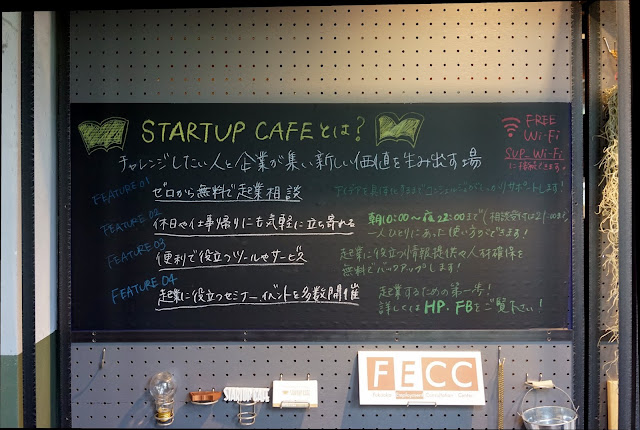 STARTUP CAFEとは?
チャレンジしたい人と企業が集い新しい価値を生み出す場
FREE
Wi-Fi
SUP_Wi-Fi
に接続できます。
FEATURE 01
ゼロから無料で起業相談
アイデアを具体化するまでコンシェルジュがしっかりサポートします!
FEATURE 02
休日や仕事帰りにも気軽に立ち寄れる
朝10:00〜夜22:00まで(相談受付は21:00まで)
一人ひとりにあった使い方ができます!
FEATURE 03
便利で役立つツールやサービス
起業に役立つ情報提供や人材確保を
無料でバックアップします!
FEATURE 04
起業に役立つセミナー、イベントを多数開催
起業するための第一歩!
詳しくはHP・FBをご覧下さい!
FECC